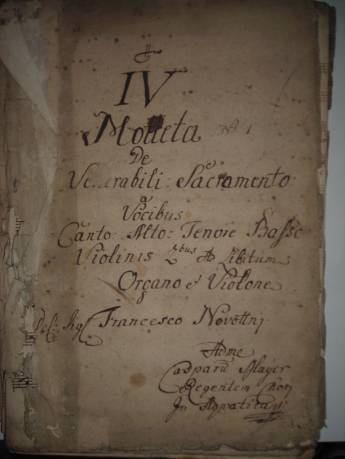 IV
Motteta
De
Venerabili Sacramento
a
Vocibus
Canto: Alto: Tenore Basso
Violinis 2bus Ad Libitum
Organo e Violone
Del Sig Francesco Novottnj
Ad me
Casparũ Mayer
Regentem Chori
In